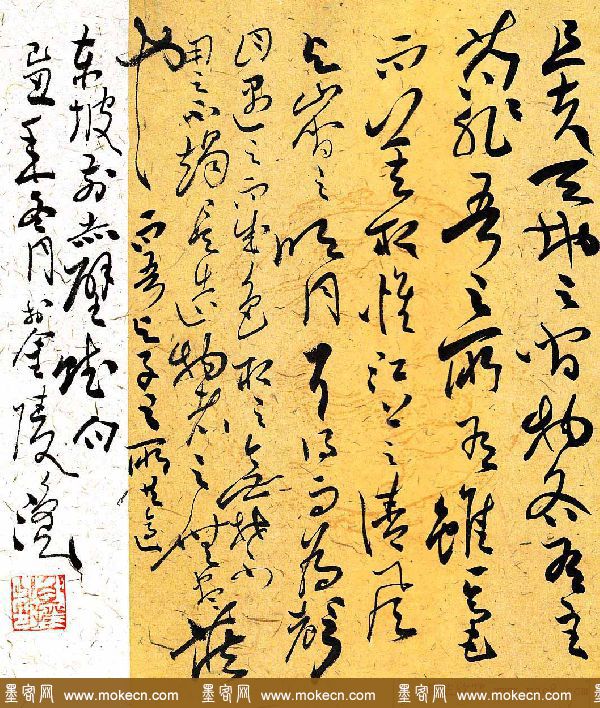 且夫天地之间物各有主
苟非吾之所有雖一毫
而莫取惟江上之清风
与山间之明月耳得而为声
目遇之而成色取之無禁
用之不竭是造物者之無尽藏
也而吾与子之所共适
东坡前赤壁赋句
己丑年冬月於金陵
墨客网 www.mokecn.com 墨客网 www.mokecn.com 墨客网 www.mokecn.com